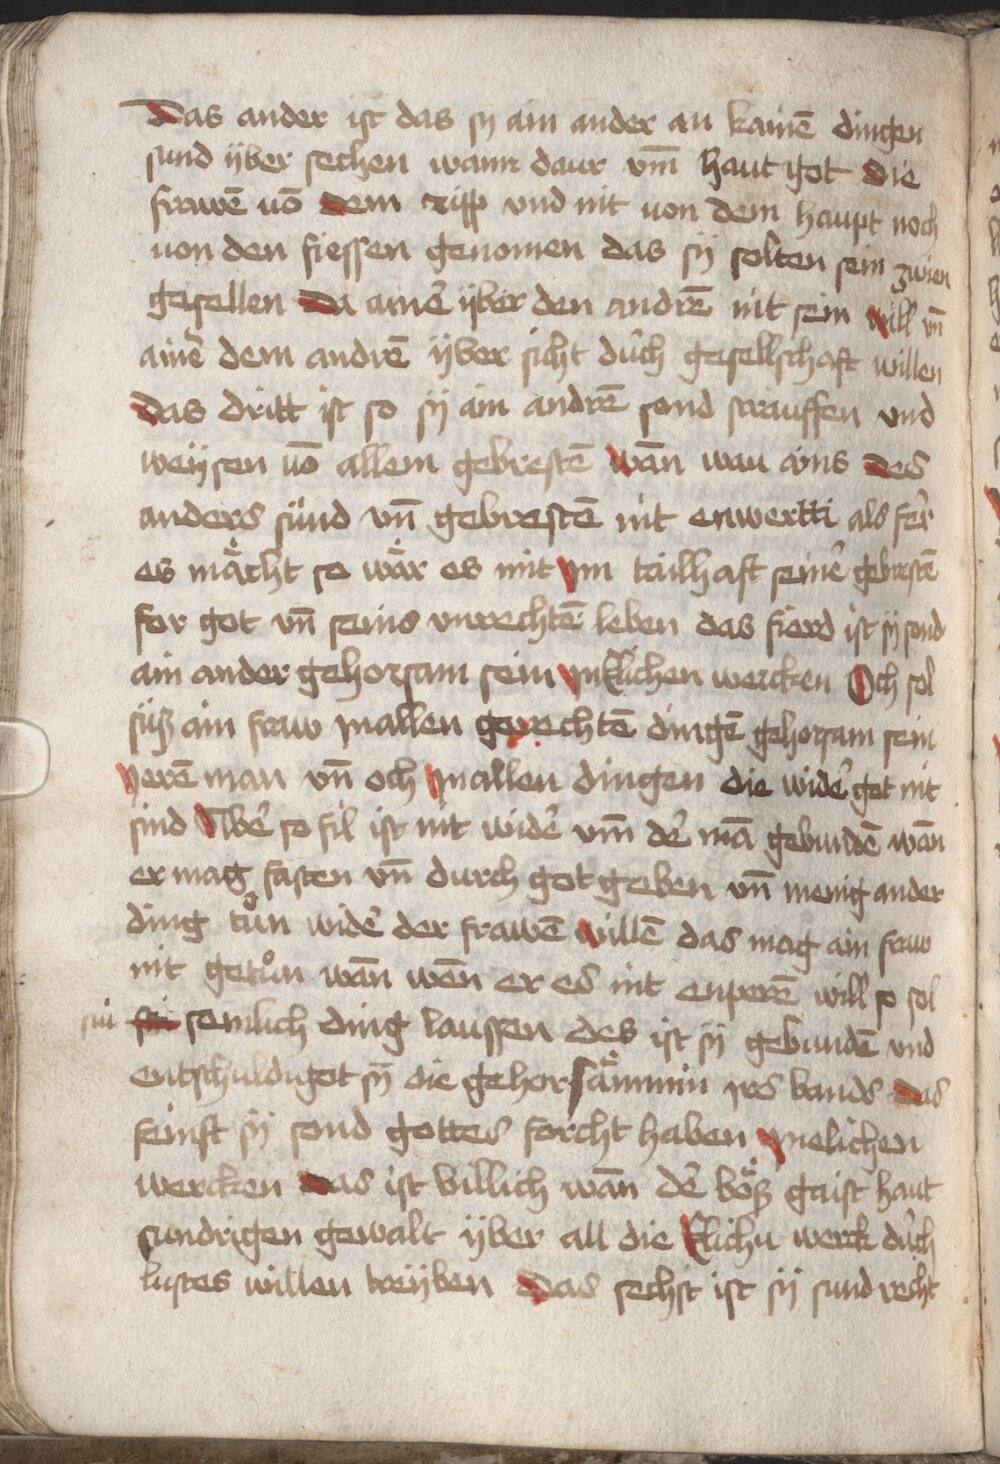 Das ander ist das sy ain ander an kainē dingen
sund ÿber sechen wann daur vm̄ haut got die
frawē vō dem ripp vnd nit von dem haupt noch
von den fiessen genomen das sÿ solten sein zwien
gesellen Da ainer̄ ÿber den andrē nit sein will vn̄
ainer̄ dem andrē ÿber sicht dûch gesellschaft willen
Das dritt ist so sÿ ain andrē sond strauffen vnd
weÿsen vō allem gebrestē Wān wau ains des
anders sünd vn̄ gebrestē nit enwertti als fer̄
es mächt so wär es mit ym tailhaft seiner̄ gebrestē
for got vn̄ seins vnrechtē leben das fierd ist sÿ sond
ain ander gehorsam sein yn Elichen wercken Och sol
süß ain fraw yn allen gerechtē dingē gehorsam sein
yerē man vn̄ och yn allen dingen die wider̄ got nit
sind Aber̄ so fil ist nit wider̄ vm̄ der̄ mā gebundē wān
er mag fasten vn̄ durch got geben vn̄ menig ander
ding tůn wider̄ der frawē willē das mag ain fraw
nit getůn wān wēn er es nit enperē will so sol
siü semlich ding laussen des ist sÿ gebundē vnd
entschuldigot sÿ die gehorsämmin yrs bands das
feinft sÿ sond gottes forcht haben yn elichen
wercken Das ist billich wān der̄ böß gaist haut
sundrigen gewalt ÿber all die Elichü werck dûch
lustes willen treÿben Das sechst ist sÿ sund recht